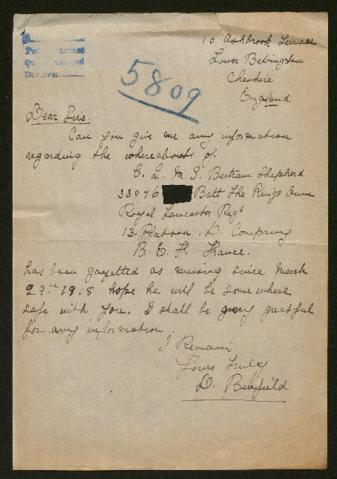 10 Ashbrook Terrace
Lower Bebington
Cheshire
England
5809
Dear Sirs.
Can you give me any information
regarding the whereabouts of.
C. Q. M. S. Bertram Shepherd
33976 Batt The Kings Own
Royal Lancaster Regt
13. Platoon. D. Company
B. E. F. France.
has been gazetted as missing since March
29th 1918 hope he will be somewhere
safe with you. I shall be very grateful
for any information.
I Remain
Yours Truly
D. Binfield